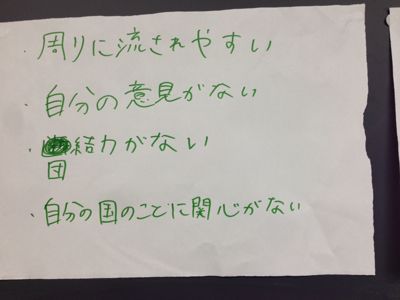 ・周りに流されやすい
・自分の意見がない
・団結力がない
・自分の国のことに関心がない